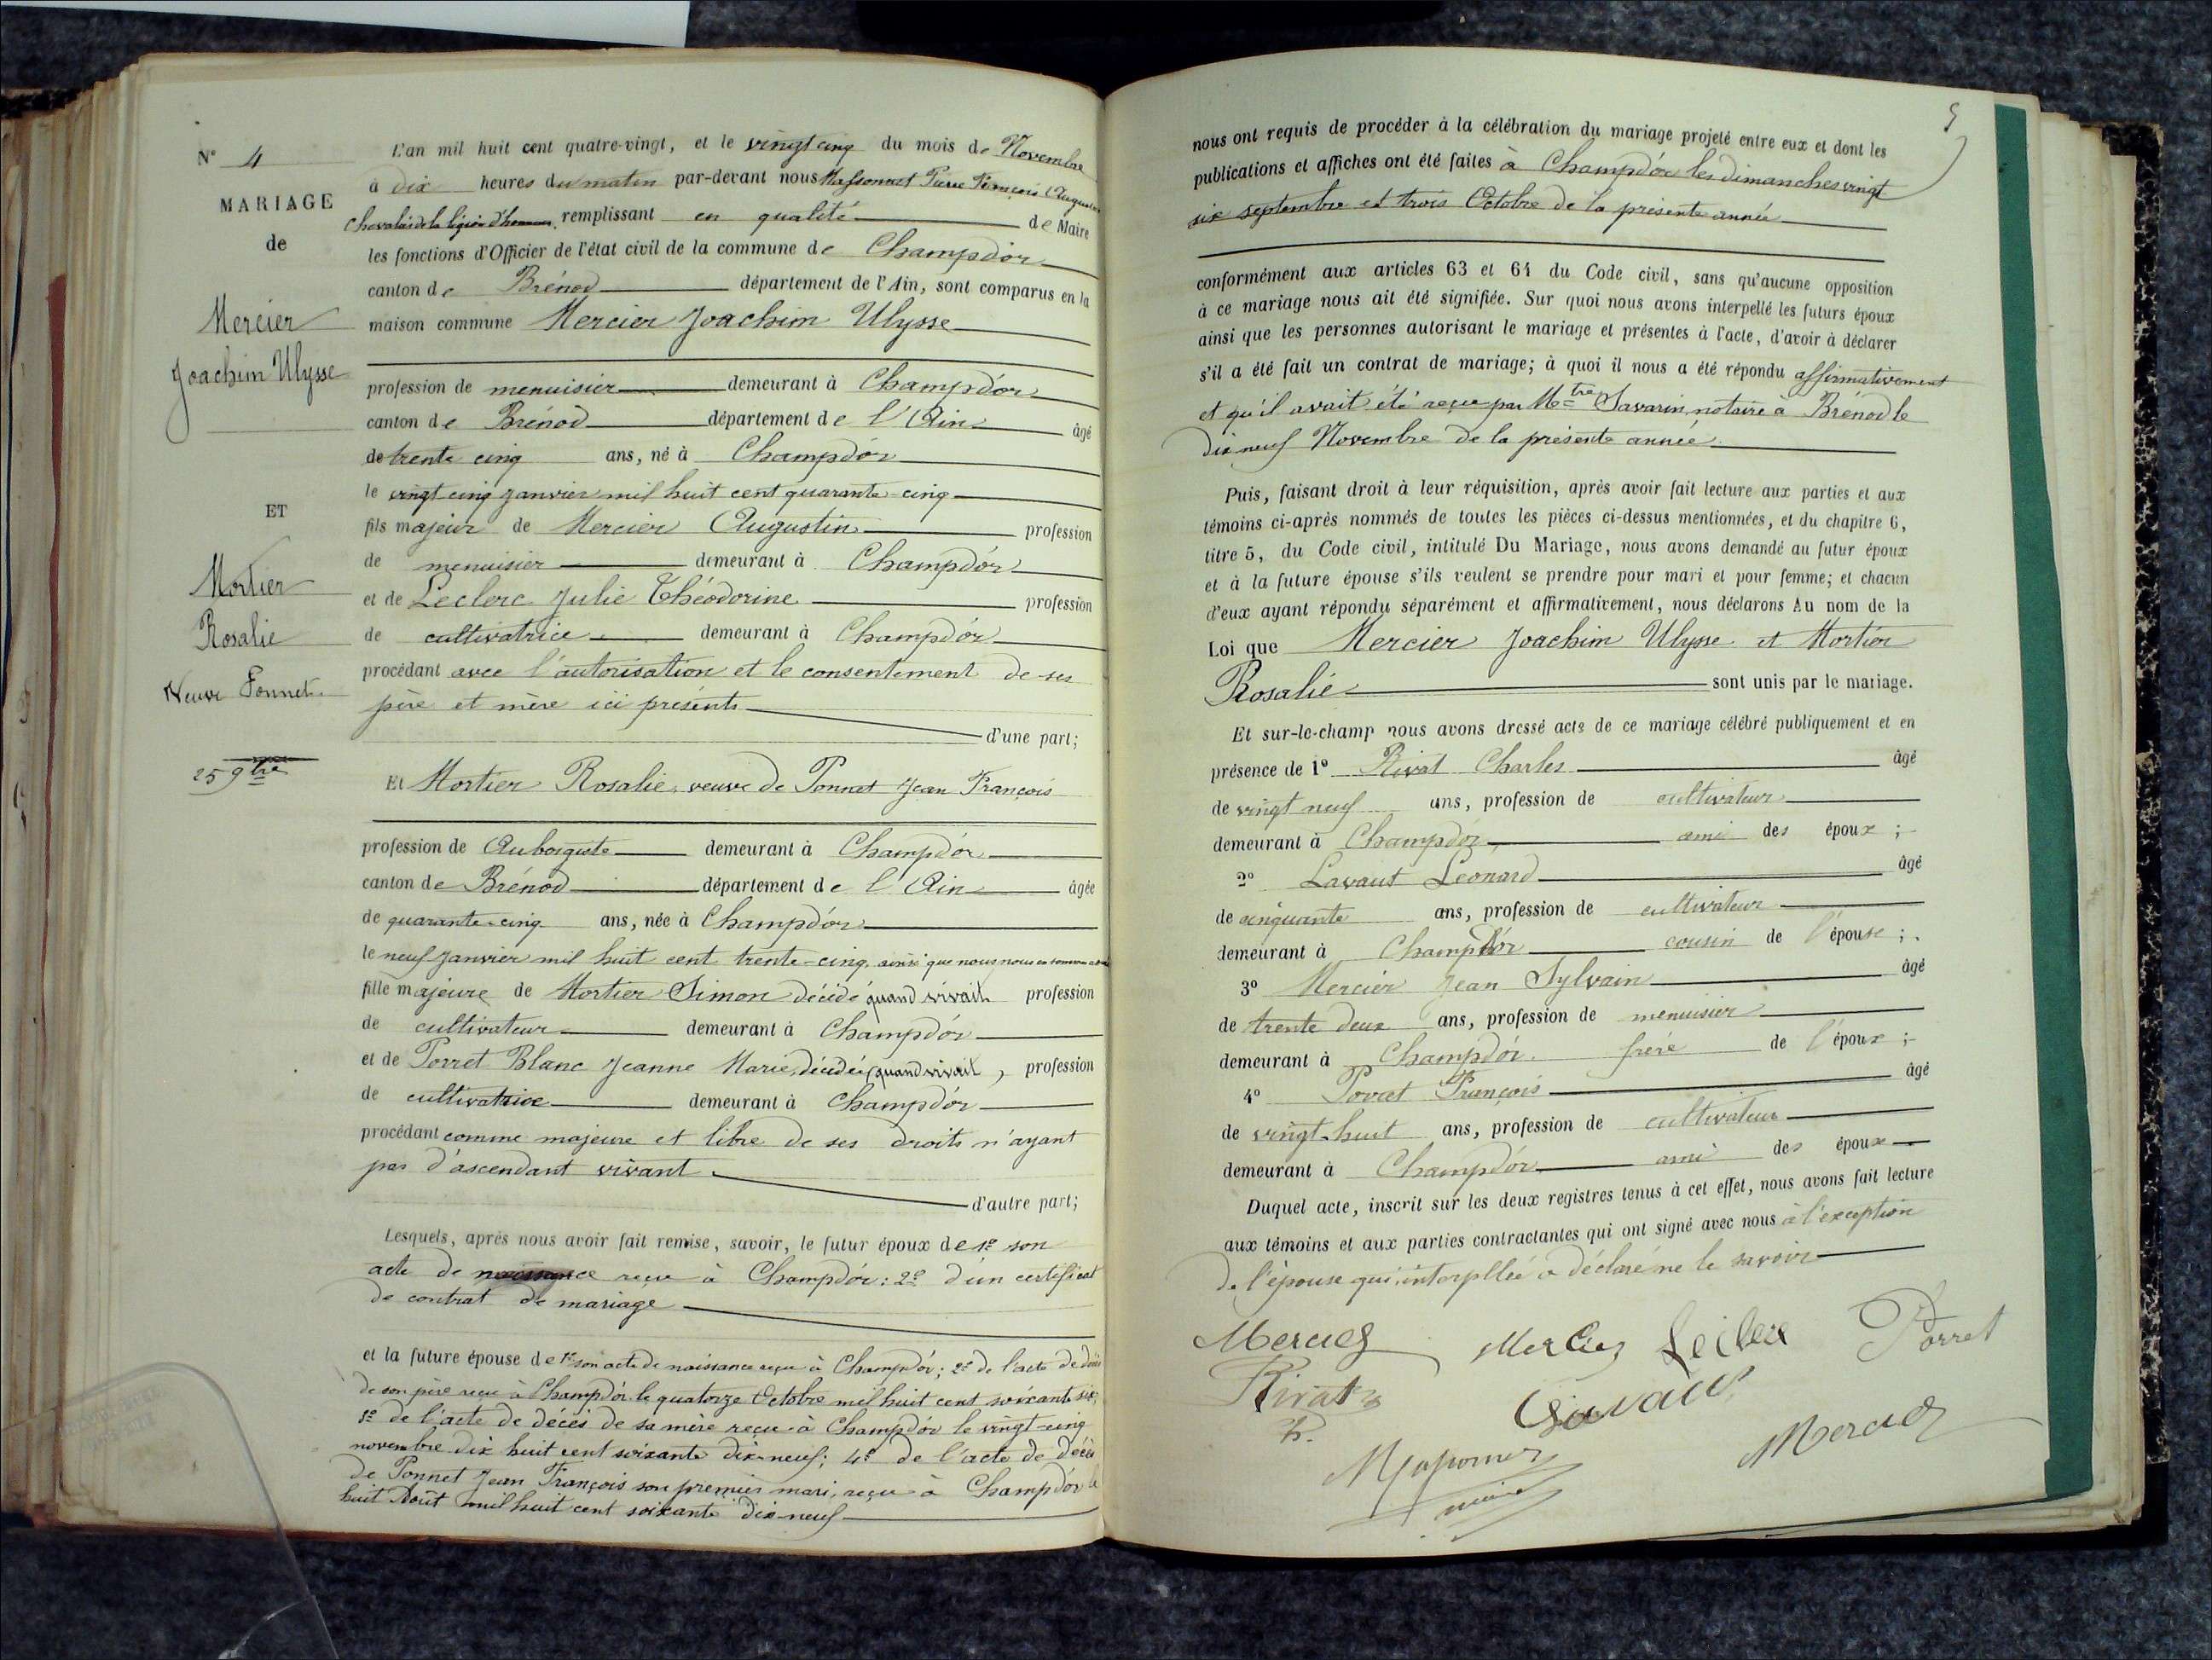 N° 4
MARIAGE
de
Mercier
Joachim Ulysse
ET
Mortier
Rosalie
Veuve Ponnet
25 9bre
L'an mil huit cent quatre-vingt, et le vingt cinq du mois de Novembre
à dix heures du matin par-devant nous Massonnet Pierre François Auguste
Chevalier de la légion d'honneur, remplissant en qualité de Maire
les fonctions d'Officier de l'état civil de la commune de Champdor
canton de Brénod département de l'Ain, sont comparus en la
maison commune Mercier Joachim Ulysse
profession de menuisier demeurant à Champdor
canton de Brénod département de l'Ain âgé
de trente cinq ans, né à Champdor
le vingt cinq janvier mil huit cent quarante-cinq
fils majeur de Mercier Augustin profession
de menuisier demeurant à Champdor
et de Leclerc Julie Théodorine profession
de cultivatrice demeurant à Champdor
procédant avec l'autorisation et le consentement de ses
père et mère ici présents
d'une part;
Et Mortier Rosalie, veuve de Ponnet Jean François
profession de Aubergiste demeurant à Champdor
canton de Brénod département de l'Ain âgée
de quarante-cinq ans, née à Champdor
le neuf janvier mil huit cent trente-cinq, ainsi que nous nous en sommes
fille majeure de Mortier Simon décédé quand vivait profession
de cultivateur demeurant à Champdor
et de Porret Blanc Jeanne Marie, décédée quand vivait, profession
de cultivatrice demeurant à Champdor
procédant comme majeure et libre de ses droits n'ayant
pas d'ascendant vivant
d'autre part;
Lesquels, après nous avoir fait remise, savoir, le futur époux de 1° son
acte de naissance reçu à Champdor: 2° d'un certificat
de contrat de mariage
et la future épouse de 1° son acte de naissance reçu à Champdor; 2° de l'acte de décès
de son père reçu à Champdor le quatorze Octobre mil huit cent soixante six;
3° de l'acte de décès de sa mère reçu à Champdor le vingt-cinq
novembre dix huit cent soixante dix-neuf; 4° de l'acte de décès
de Ponnet Jean François son premier mari, reçu à Champdor le
huit Août mil huit cent soixante dix-neuf
5
nous ont requis de procéder à la célébration du mariage projeté entre eux et dont les
publications et affiches ont été faites à Champdor les dimanches vingt
six septembre et trois Octobre de la présente année
conformément aux articles 63 et 64 du Code civil, sans qu'aucune opposition
à ce mariage nous ait été signifiée. Sur quoi nous avons interpellé les futurs époux
ainsi que les personnes autorisant le mariage et présentes à l'acte, d'avoir à déclarer
s'il a été fait un contrat de mariage; à quoi il nous a été répondu affirmativement
et qu'il avait été reçu par Mtre Savarin, notaire à Brénod le
dix neuf Novembre de la présente année
Puis, faisant droit à leur réquisition, après avoir fait lecture aux parties et aux
témoins ci-après nommés de toutes les pièces ci-dessus mentionnées, et du chapitre 6,
titre 5, du Code civil, intitulé Du Mariage, nous avons demandé au futur époux
et à la future épouse s'ils veulent se prendre pour mari et pour femme; et chacun
d'eux ayant répondu séparément et affirmativement, nous déclarons Au nom de la
Loi que Mercier Joachim Ulysse et Mortier
Rosalie sont unis par le mariage.
Et sur-le-champ nous avons dressé acte de ce mariage célébré publiquement et en
présence de 1° Rivat Charles âgé
de vingt neuf ans, profession de cultivateur
demeurant à Champdor, ami des époux;
2° Lavaut Léonard âgé
de cinquante ans, profession de cultivateur
demeurant à Champdor cousin de l'épouse;
3° Mercier Jean Sylvain âgé
de trente deux ans, profession de menuisier
demeurant à Champdor frère de l'époux;
4° Porret François âgé
de vingt-huit ans, profession de cultivateur
demeurant à Champdor ami des époux
Duquel acte, inscrit sur les deux registres tenus à cet effet, nous avons fait lecture
aux témoins et aux parties contractantes qui ont signé avec nous à l'exception
de l'épouse qui, interpllée a déclaré ne le savoir
Mercier Mercier Leclerc Porret
Rivat
Massonnet Mercier
maire